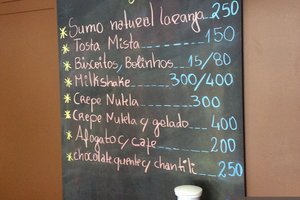 Sumo natural laranja 250
Tosta Mista 150
Biscoitos, Bolinhos 15/80
Milkshake 300/400
Crepe Nutela 300
Crepe Nutela c/ gelado 400
Afogato c/ cafe 200
chocolate quente c/ chantili 250